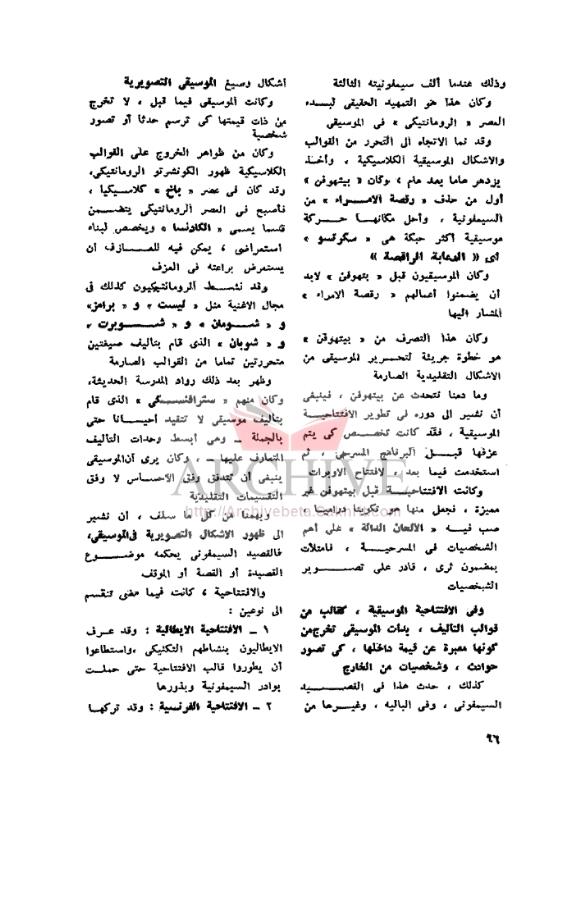 وذلك عندما ألف سيمفونيته الثالثة
وكان هذا هو التمهيد الحقيقى لبدء
العصر « الرومانتيكى » فى الموسيقى
وقد نما الاتجاه الى التحرر من القوالب
والاشكال الموسيقية الكلاسيكية ، وأخذ
يزدهر عاما بعد عام ، وكان « بيتهوفن »
أول من حذف « رقصة الامراء » من
السيمفونية ، وأحل مكانها حركة
موسيقية أكثر حبكة هى « سكرتسو »
أى « الدعابة الراقصة »
وكان الموسيقيون قبل « بتهوفن » لابد
أن يضمنوا أعمالهم « رقصة الامراء »
المشار اليها
وكان هذا التصرف من « بيتهوفن »
هو خطوة جريئة لتحرير الموسيقى من
الاشكال التقليدية الصارمة
وما دمنا نتحدث عن بيتهوفن ، فينبغى
أن نشير الى دوره فى تطوير الافتتاحية
الموسيقية ، فقد كانت تخصص كى يتم
عزفها قبل البرنامج المسرحى ، ثم
استخدمت فيما بعد ، لافتتاح الاوبرات
وكانت الافتتاحية قبل بيتهوفن غير
مميزة ، فجعل منها هو تكوينا دراميا ،
صب فيه « الألحان الدالة » على أهم
الشخصيات فى المسرحية ، فامتلأت
بمضمون ثرى ، قادر على تصوير
الشخصيات
وفى الافتتاحية الموسيقية ، كقالب من
قوالب التأليف ، بدأت الموسيقى تخرج من
كونها معبرة عن قيمة داخلها ، كى تصور
حوادث ، وشخصيات من الخارج
كذلك ، حدث هذا فى القصيد
السيمفونى ، وفى الباليه ، وغيرها من
أشكال وصيغ الموسيقى التصويرية
وكانت الموسيقى فيما قبل ، لا تخرج
من ذات قيمتها كى ترسم حدثا أو تصور
شخصية
وكان من ظواهر الخروج على القوالب
الكلاسيكية ظهور الكونشرتو الرومانتيكى،
وقد كان فى عصر « باخ » كلاسيكيا ،
فأصبح فى العصر الرومانتيكى يتضمن
قسما يسمى « الكادنسا » ويخصص لبناء
استعراضى ، يمكن فيه للعازف أن
يستعرض براعته فى العزف
وقد نشط الرومانتيكيون كذلك فى
مجال الاغنية مثل « ليست » و « برامز»
و « شومان » و « شوبرت »
و « شوبان » الذى قام بتأليف صيغتين
متحررتين تماما من القوالب الصارمة
وظهر بعد ذلك رواد المدرسة الحديثة،
وكان منهم « سترافنسكى » الذى قام
بتأليف موسيقى لا تتقيد أحيانا حتى
بالجملة ـ وهى أبسط وحدات التأليف
المتعارف عليها ـ ، وكان يرى أن الموسيقى
ينبغى أن تتدفق وفق الاحساس لا وفق
التقسيمات التقليدية
ويهمنا من كل ما سلف ، أن نشير
الى ظهور الاشكال التصويرية فى الموسيقى،
فالقصيد السيمفونى يحكمه موضوع
القصيدة أو القصة أو الموقف
والافتتاحية ، كانت فيما مضى تنقسم
الى نوعين :
١ ـ الافتتاحية الايطالية : وقد عرف
الايطاليون بنشاطهم التكنيكى ،واستطاعوا
أن يطوروا قالب الافتتاحية حتى حملت
بوادر السيمفونية وبذورها
٢ ـ الافتتاحية الفرنسية : وقد تركها
٩٦
ARCHIVE